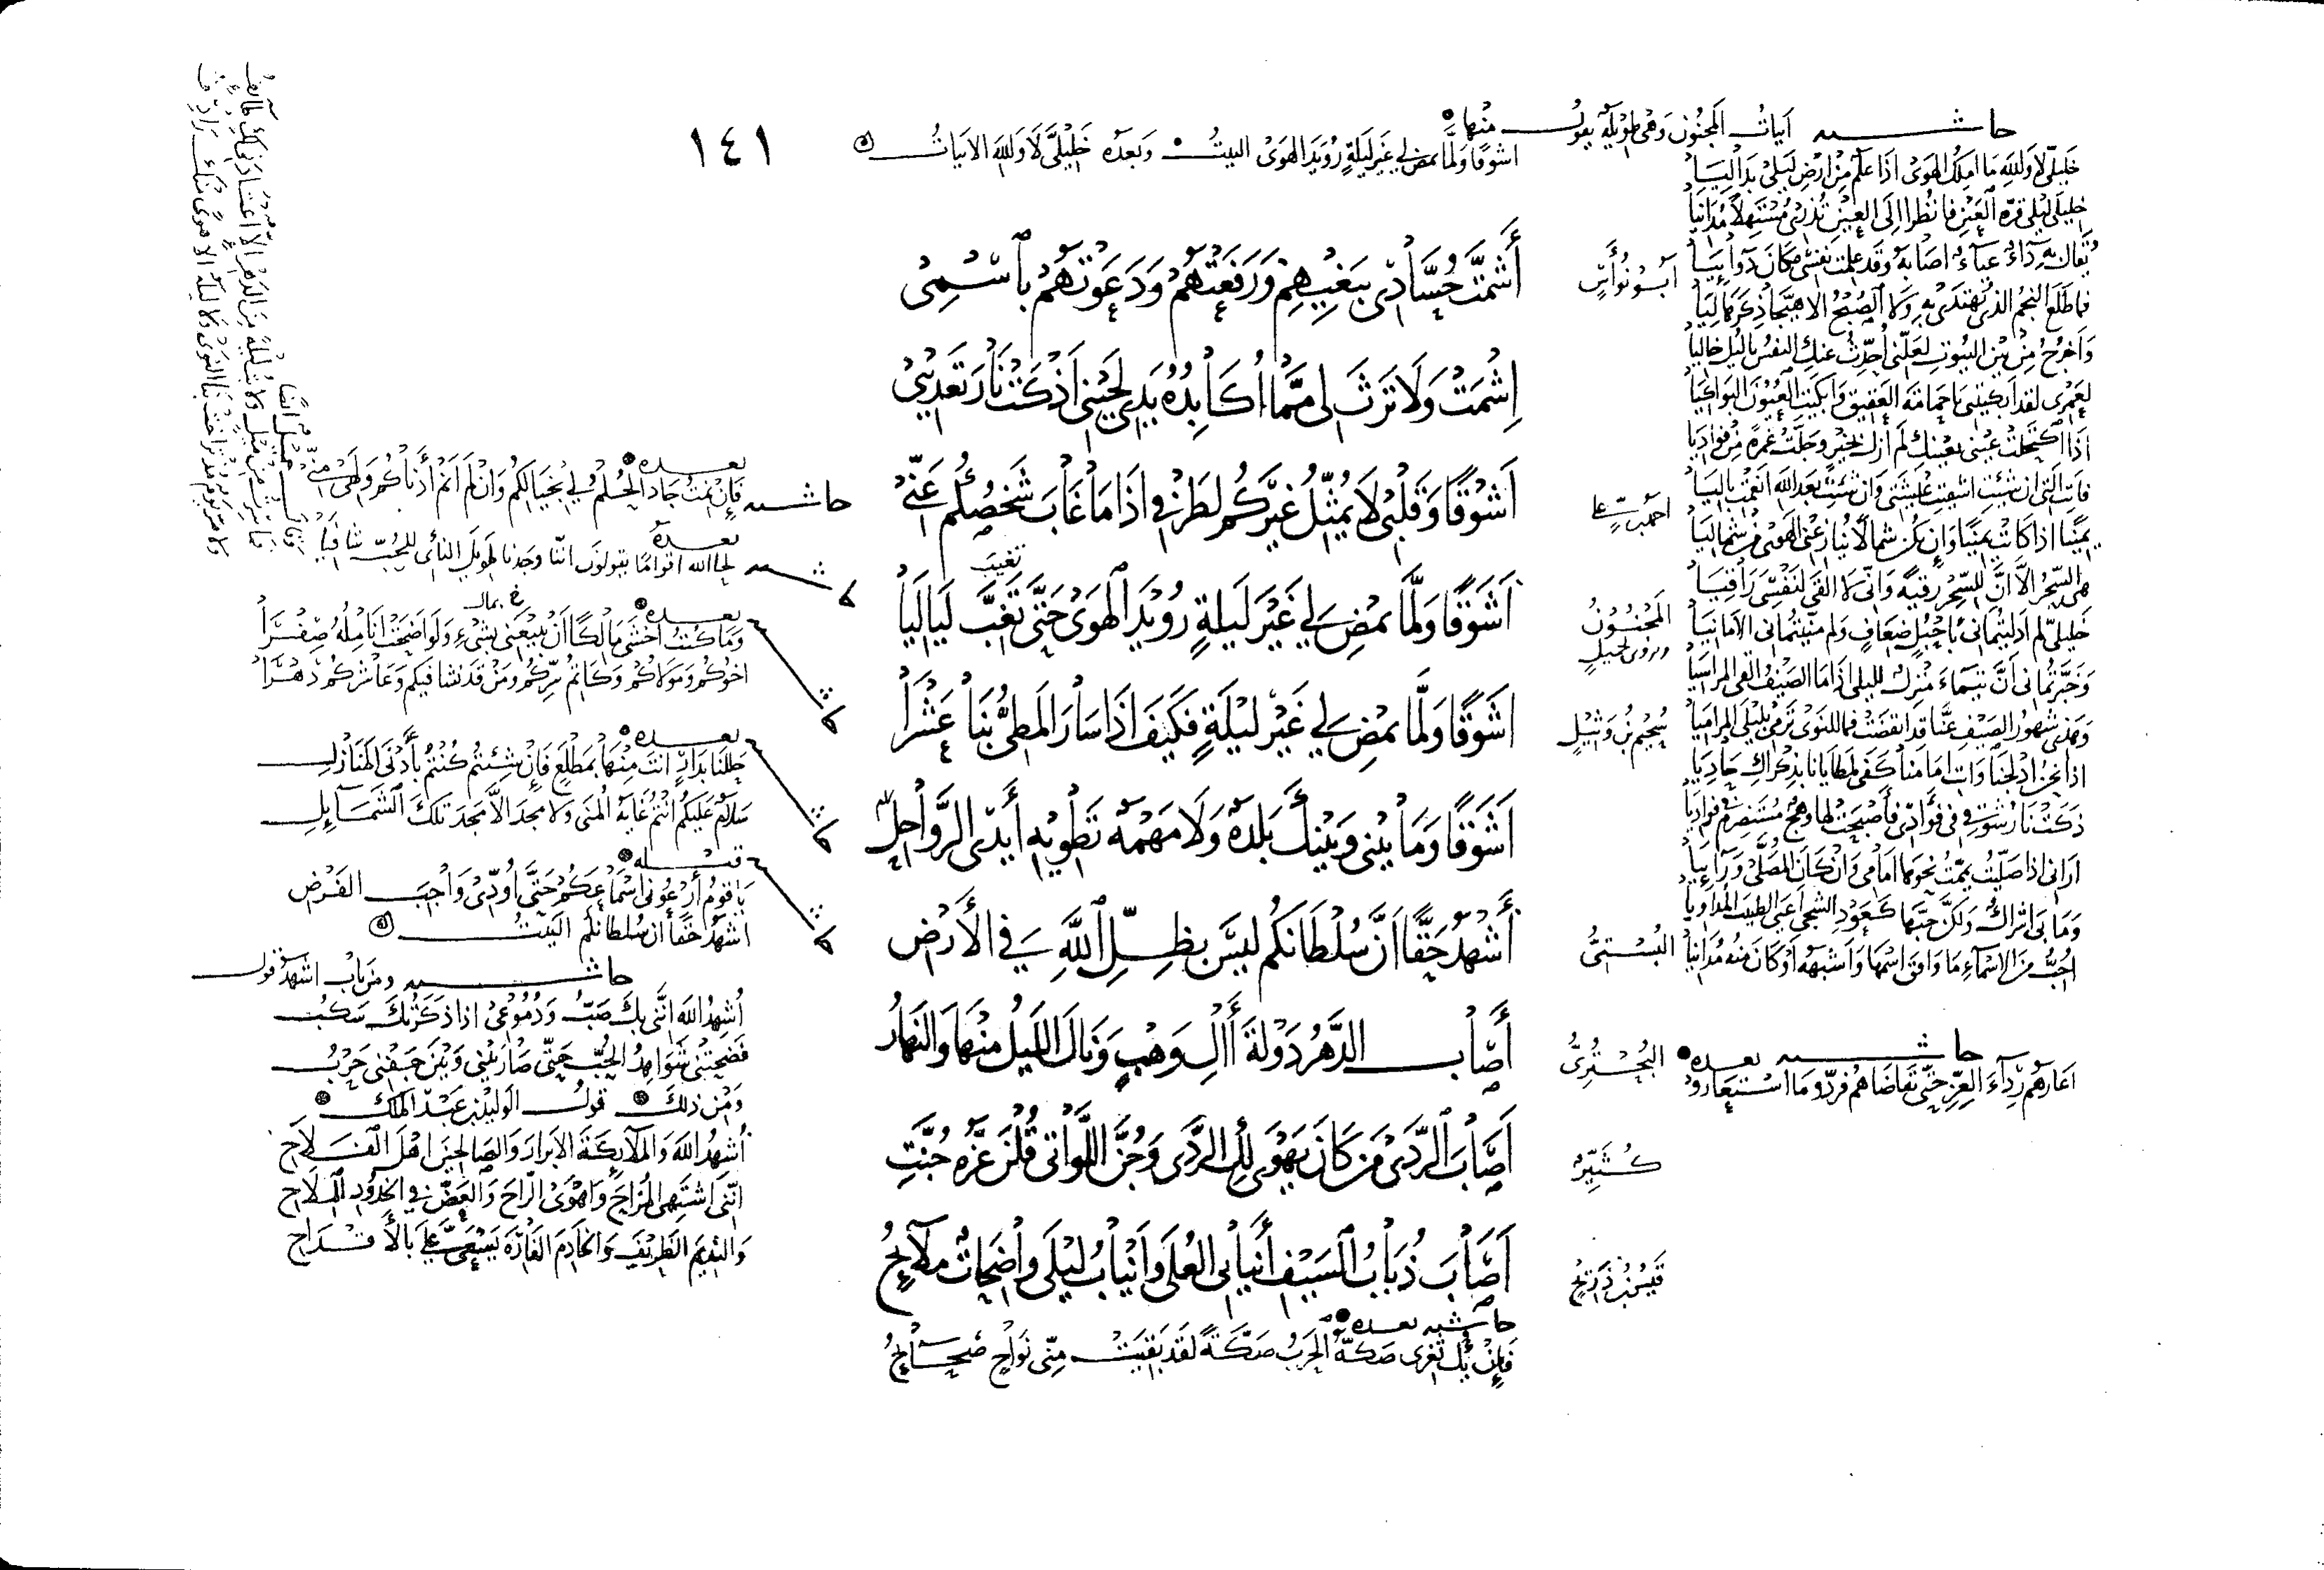 حاشية أبيات المجنون وهي طويلة يقول منها
أشوقًا ولمّا يمض لي غير ليلةٍ رُوَيدَ الهوى البيت وبعده خليليّ لا والله الأبيات
١٤١
خليليّ لا والله ما املك الهوى اذا علم من ارض ليلى بدا ليا
خليلي ليلى قرة العين فانظرا الى العين تذرى مستهلا مدانيا
يقال به داء عياء اصابه وقد علمت نفسى مكان دوائيا
فما طلع النجم الذى تهتدى به ولا الصبح الا هيجا ذكرها ليا
واخرج من بين البيوت لعلنى احدث عنك النفس بالليل خاليا
لعمرى لقد ابكيتنى يا حمامة العقيق وابكيت العيون البواكيا
اذا اكتحلت عينى بعينك لم ازل بخير وجلت غمرة من فواديا
فانت التى ان شئت اشقيت عيشتى وان شئت بعد الله انعمت باليا
يمينا اذا كانت يمينا وان تكن شمالا ينازعنى الهوى من شماليا
هى السحر الا ان للسحر رقية وانى لا القى لنفسى راقيا
خليلىّ لم ادليتمانى باحبل ضعاف ولم منيتمانى الامانيا
وخبرتمانى ان تيماء منزل لليلى اذا ما الصيف القى المراسيا
وهذى شهور الصيف عنا قد انقضت فما للنوى ترمى بليلى المراميا
اذا نحن ادلجنا وانت امامنا كفى لمطايانا بذكراك حاديا
ذكت نار شوق فى فؤادى فاصبحت لها وهج مستضرم فى فواديا
ارانى اذا صليت يممت نحوها امامى وان كان المصلى ورائيا
وما بى اشراك ولكن حبها كعود الشجى اعيى الطبيب المداويا
احب من الاسماء ما وافق اسمها واشبهه او كان منه مدانيا
حاشية بعده
اعارهم رداء العز حتى تقاضاهم فردوا ما استعاروه
أبو نُوَاسٍ
أَشْمَتَّ حُسَّادِى بِبَغْيِهِمْ وَرَفَعْتَهُمْ وَدَعَوْتَهُمْ بِاسْمِى
اِشْمَتْ وَلَا تَرْثَ لِى مِمَّا أُكَابِدُهُ يَدِى لِحَيْنِى اَذْكَتْ نَارَ تَعْذِيْبِىْ
أَشَوْقًا وَقَلْبِى لَا يُمَثِّلُ غَيْرَكُمْ لِطَرْفِى اِذَا مَا غَابَ شَخْصُكُمُ عَنِّىْ
تغيب
المجنون
ويروى لجميل
أَشَوْقًا وَلَمَّا يَمْضِ لِي غَيْرُ لَيْلَةٍ رُوَيْدَ الْهَوَىْ حَتَّى تَغِبَّ لَيَالِيَا
سحيم بن وثيل
أَشَوْقًا وَلَمَّا يَمْضِ لِي غَيْرُ لَيْلَةٍ فَكَيْفَ اِذَا سَارَ الْمَطِىُّ بِنَا عَشْرَا
أَشَوْقًا وَمَا بَيْنِى وَبَيْنَكَ بَلْدَةٌ وَلَا مَهْمَهٌ تَطْوِيْهِ أَيْدِى الرَّوَاحِلِ
البستىُّ
أَشْهَدُ حَقًّا اَنَّ سُلْطَانَكُمْ لَيْسَ بِظِلِّ اللَّهِ فِي الْأَرْضِ
البحترىُّ
أَصَابَ الدَّهْرُ دَوْلَةَ آلِ وَهْبٍ وَنَالَ اللَّيْلُ مِنْهَا وَالنَّهَارُ
كثيّر
أَصَابَ الرَّدَىْ مَنْ كَانَ يَهْوَى لَكِ الرَّدَى وَجُنَّ اللَّوَاتِى قُلْنَ عَزَّةُ جُنَّتِ
قيس بن ذريح
أَصَابَ ذُبَابُ السَّيْفِ أَنْيَابِى الْعُلَى وَأَنْيَابُ لَيْلَى وَاضِحَاتٌ مَلَائِحُ
حاشية بعده
فإن يك ثغرى صكّه الحرب صكّةً لقد بقيت منّى نواحٍ صحائحُ
بعده
حاشية فإن نمت جاد الحلم لي بخيالكم وان لم انم أدناكم ولهى منّى
بعده
لحا الله اقوامًا يقولون اننا وجدنا طويل النأى للحب شافيا
بعده
وما كنت اخشى مالكا ان يبيعنى بشىء ولو اضحت انامله صفرا
اخوكم ومولاكم وكاتم سركم ومن قد نشا فيكم وعاشركم دهرا
بعده
حللنا بدار انت منها بمطلع فإن شئتم كنتم بأدنى المنازل
سلام عليكم انتم غاية المنى ولا مجد الا مجد تلك الشمائل
قبله
يا قوم أرعونى اسماعكم حتى أودّى واجب الفرض
اشهد حقًا أن سلطانكم البيت
حاشية ومن باب اشهد قول
أشهد الله أننى بك صبّ ودموعى اذا ذكرتك سكب
فضحتنى شواهد الحب حتى صار بينى وبين جفنى حرب
ومن ذلك قول الوليد بن عبد الملك
أشهد الله والملائكة الابرار والصالحين اهل الفلاح
اننى اشتهى المزاح واهوى الراح والعض في الخدود الملاح
والنديم الظريف والخادم الفاره يسعى علىّ بالأقداح